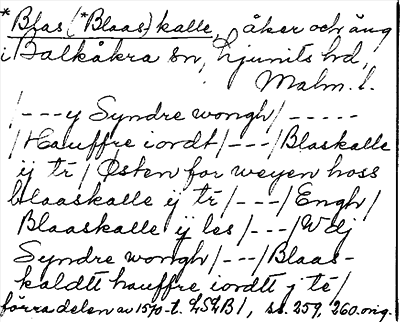 *Blas(*Blaas)kalle, åker och äng
i Balkåkra sn, Ljunits hd,
Malm. l.
/---y Syndre wongh/-----
/Hauffre iordt/---/Blaskalle
ij tr/Østen for weyen hoss
blaaskalle ij tr/---/Engh/
Blaaskalle ij les/---/Wdj
Syndre wongh/---/Blaas-
kaldtt hauffre iordtt j tr/
förra delen av 1570-t. LSLB1, ss. 259, 260. orig.